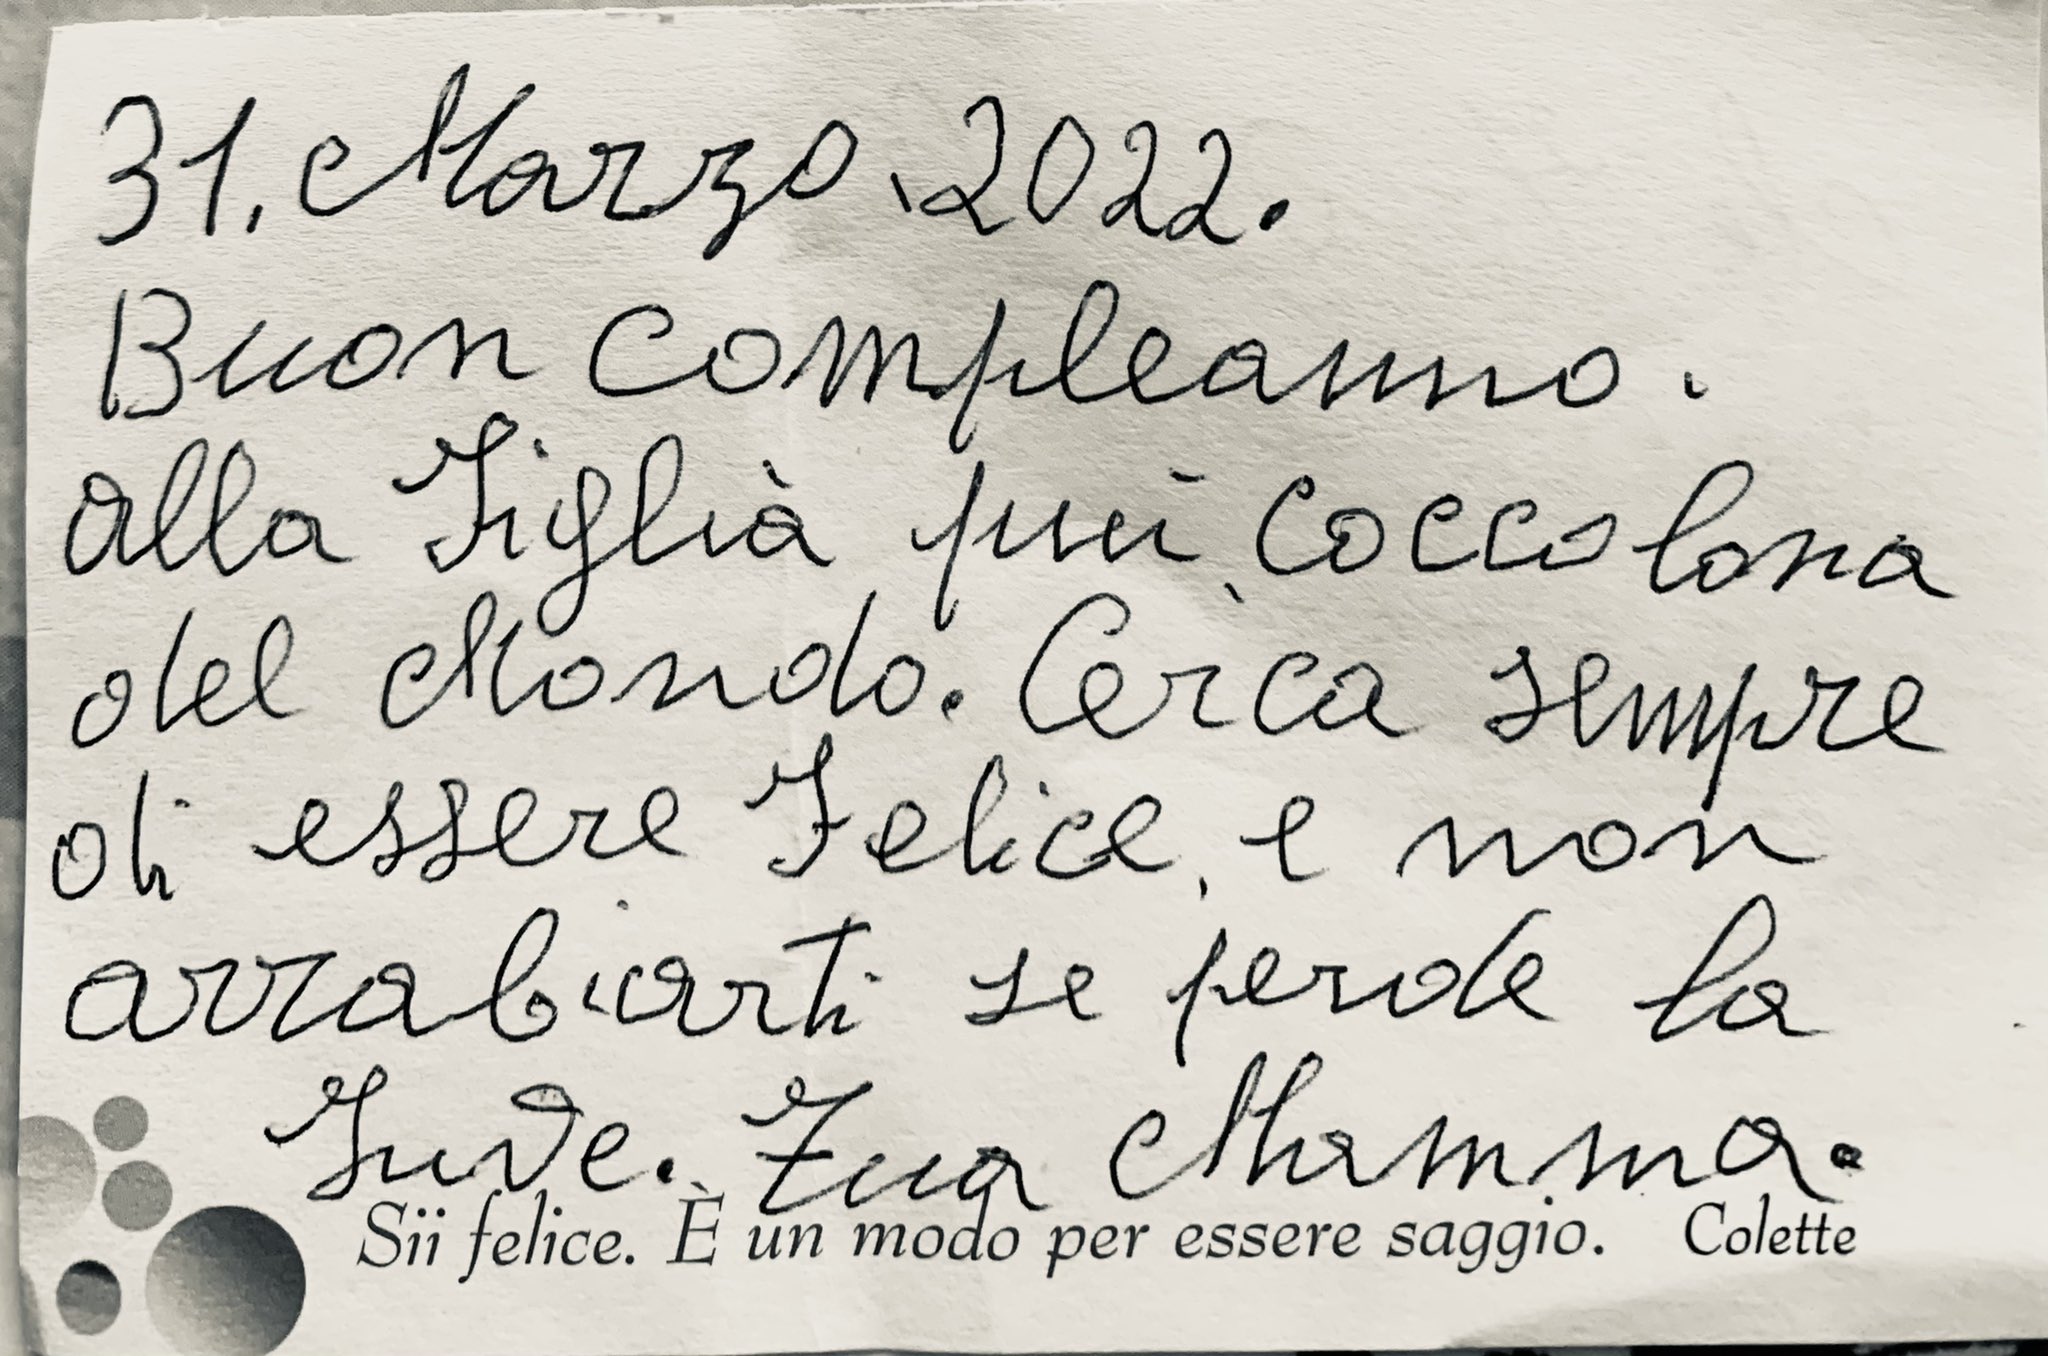 31. Marzo. 2022.
Buon Compleanno.
alla Figlià più, Coccolona
del Mondo. Cerca sempre
di essere Felice, e non
arrabiarti se perde la
Juve. Tua Mamma.
Sii felice. È un modo per essere saggio. Colette